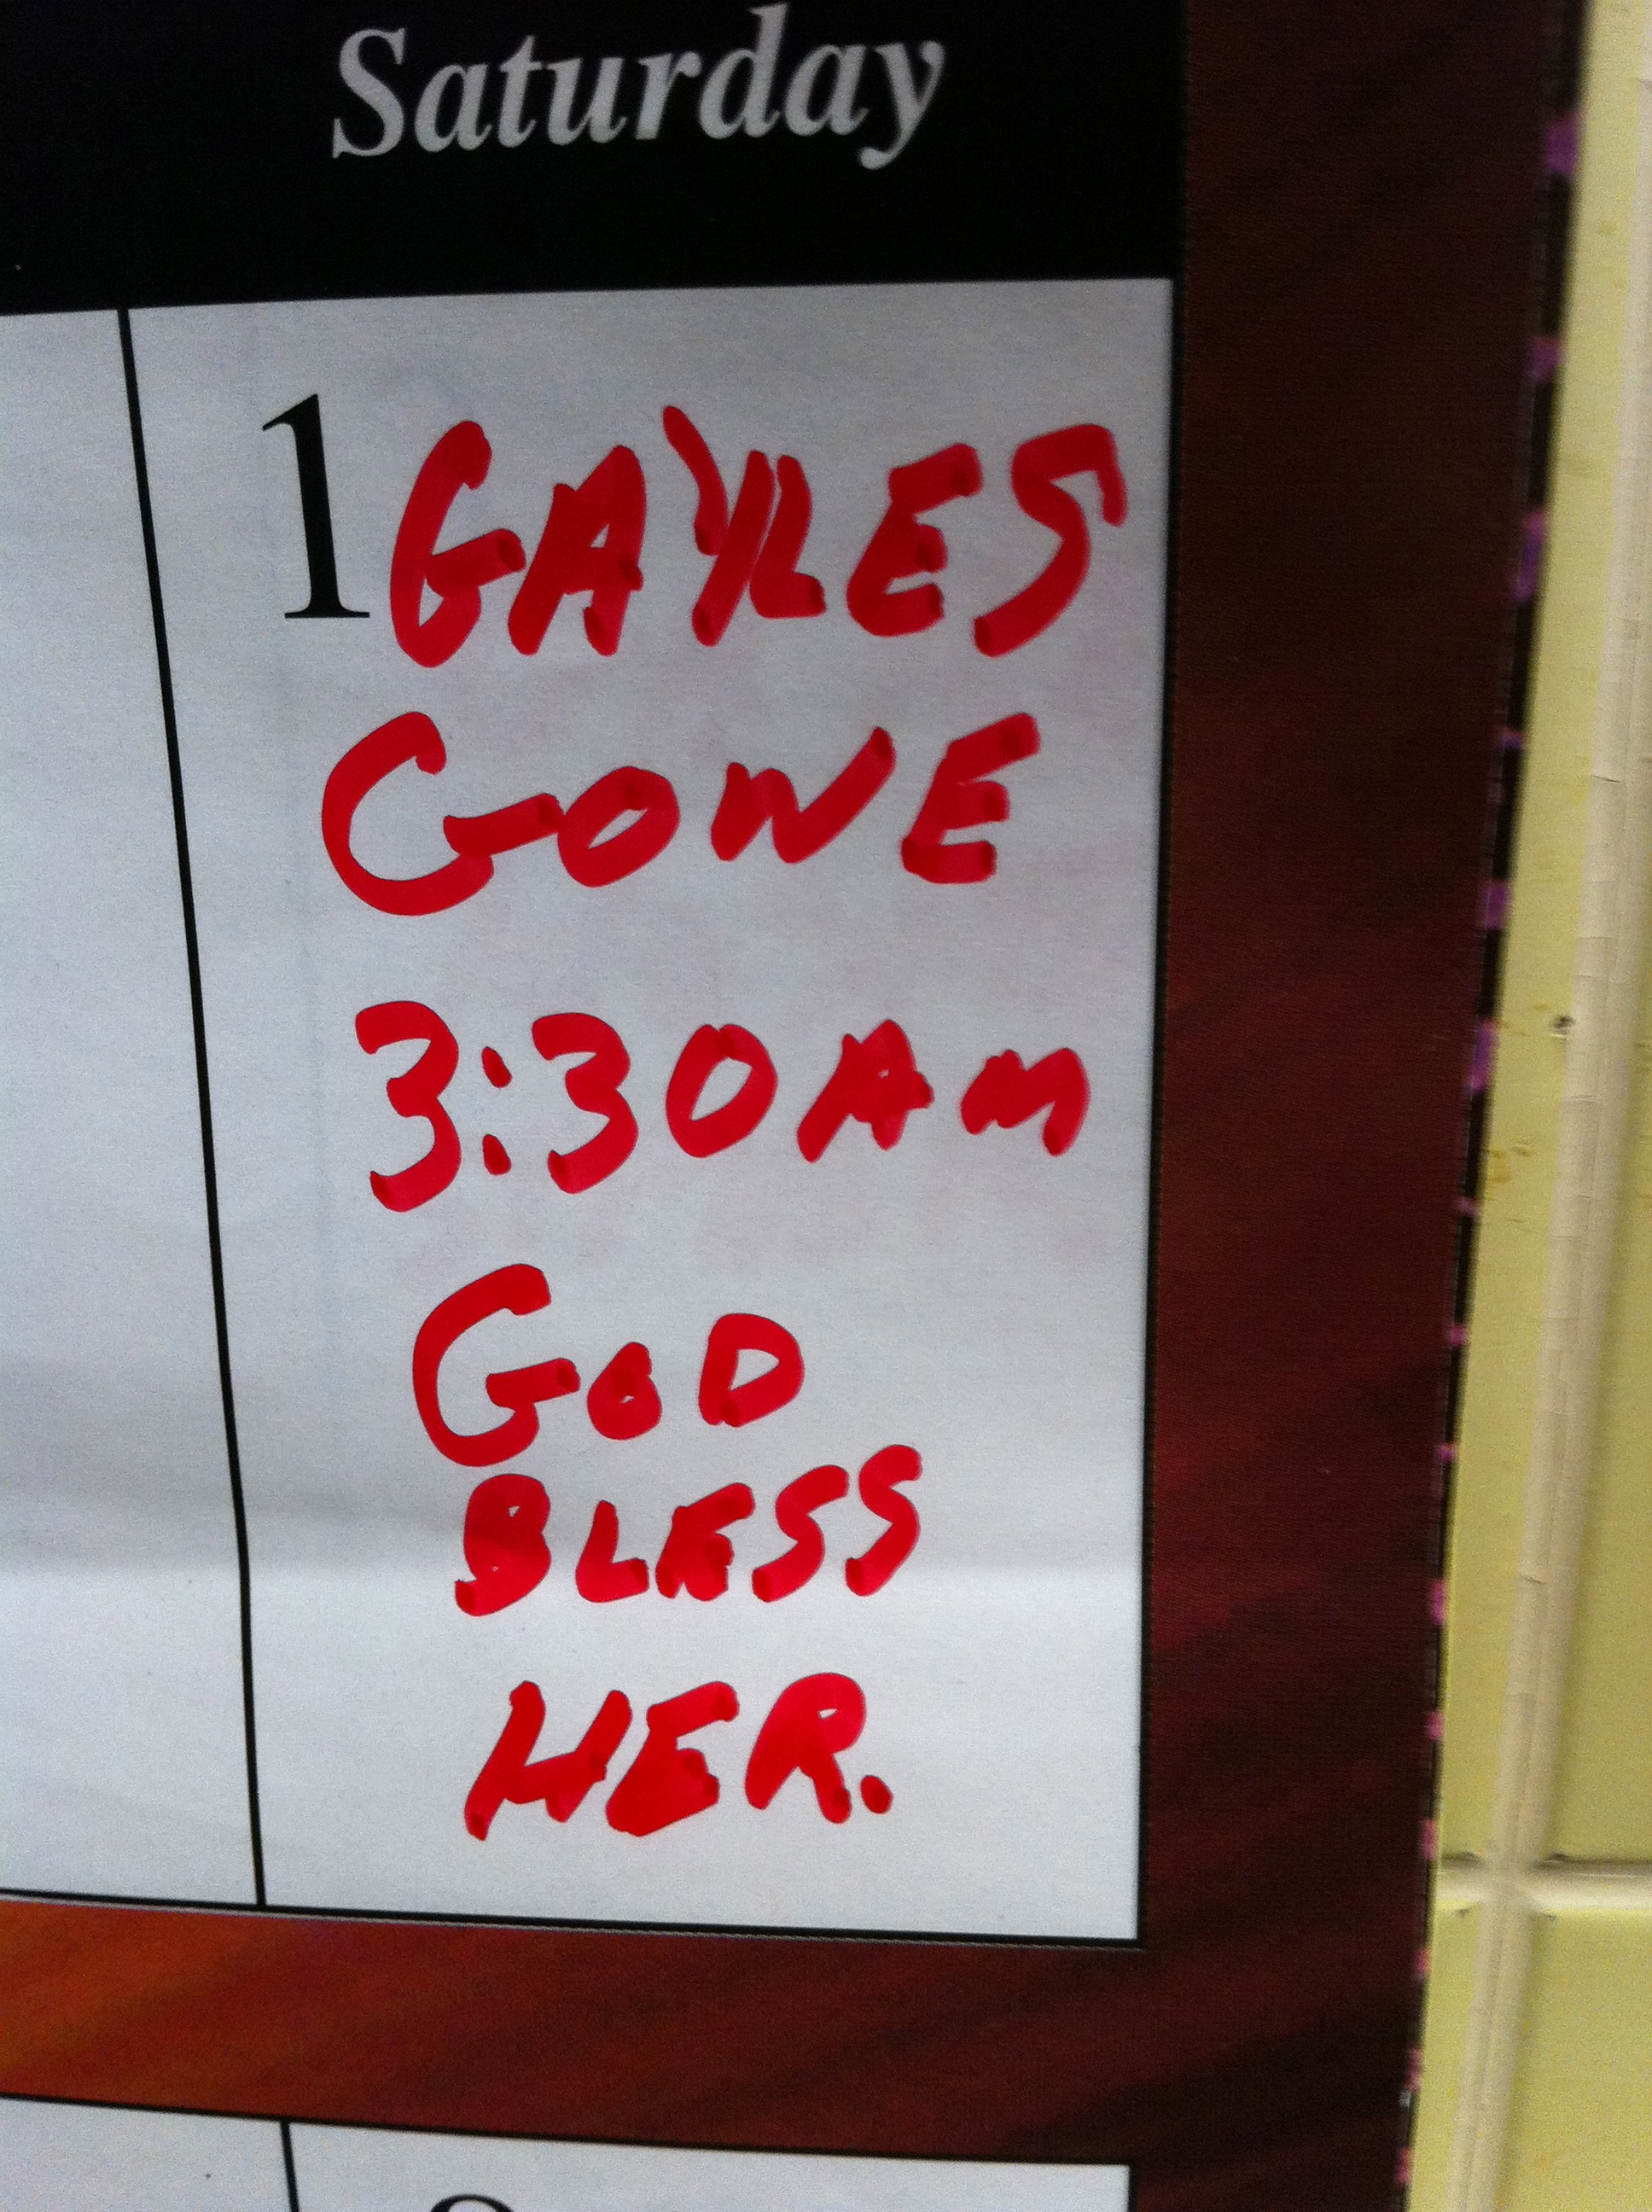 Saturday
1 GAYLES
GONE
3:30AM
GOD
BLESS
HER.